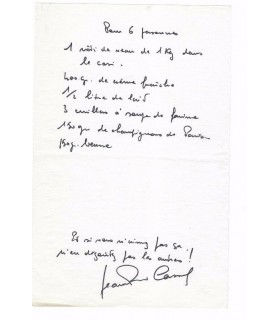 Pour 6 personnes
1 rôti de veau de 1 Kg dans
le cari.
400 g. de crème fraîche
1/2 litre de lait
3 cuillers à soupe de farine
150 gr de champignons de Paris
150g. beurre
Et si vous n'aimez pas ça.
n'en dégoûtez pas les autres !